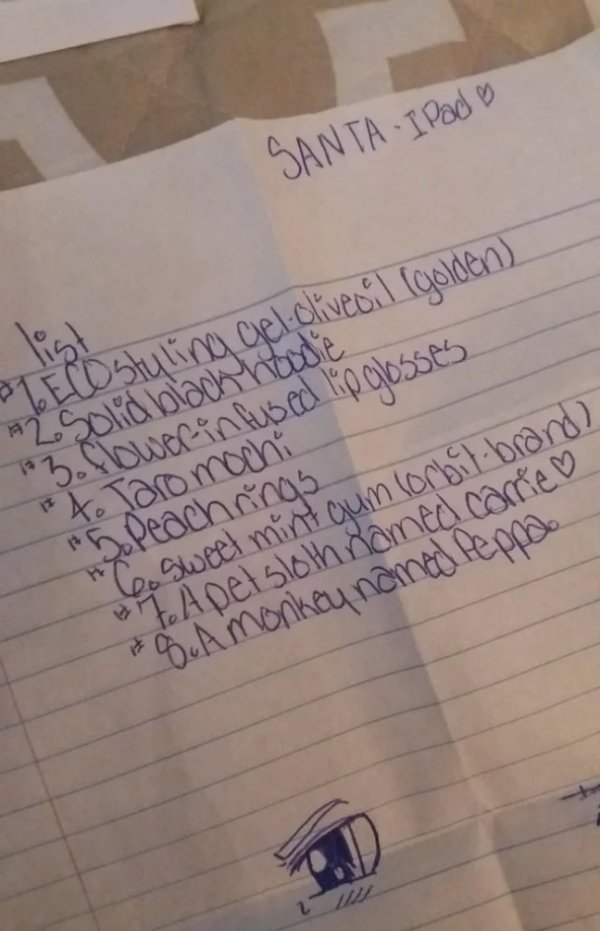 SANTA - IPad ♡
list
#1. ECO styling gel-olive oil (golden)
#2. Solid black hoodie
#3. flower-infused lip glosses
#4. Taro mochi
#5. Peach rings
#6. sweet mint gum (orbit-brand)
#7. A pet sloth named carrie ♡
#8. A monkey named Peppa.